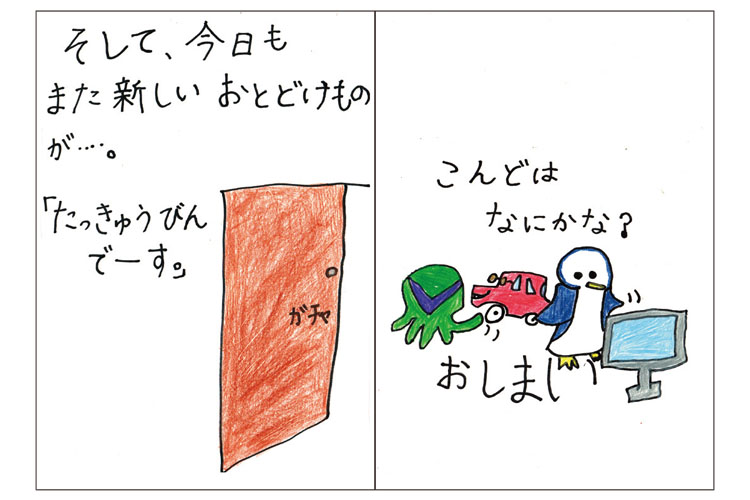 そして、今日も
また新しいおとどけもの
が‥‥。
「たっきゅうびん
でーす。」
ガチャ
こんどは
なにかな?
おしまい